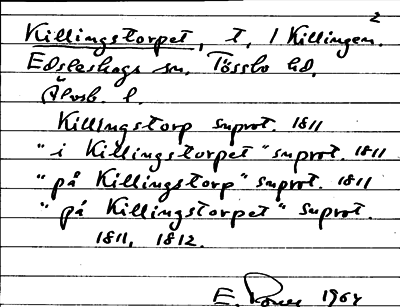 2
Killingstorpet, t. / Killingen.
Edsleskogs sn. Tössbo hd.
Älvsb. l.
Killingstorp snprot. 1811
"i Killingstorpet" snprot. 1811
"på Killingstorp" snprot. 1811
"på Killingstorpet" snprot.
1811, 1812.
E. 1964